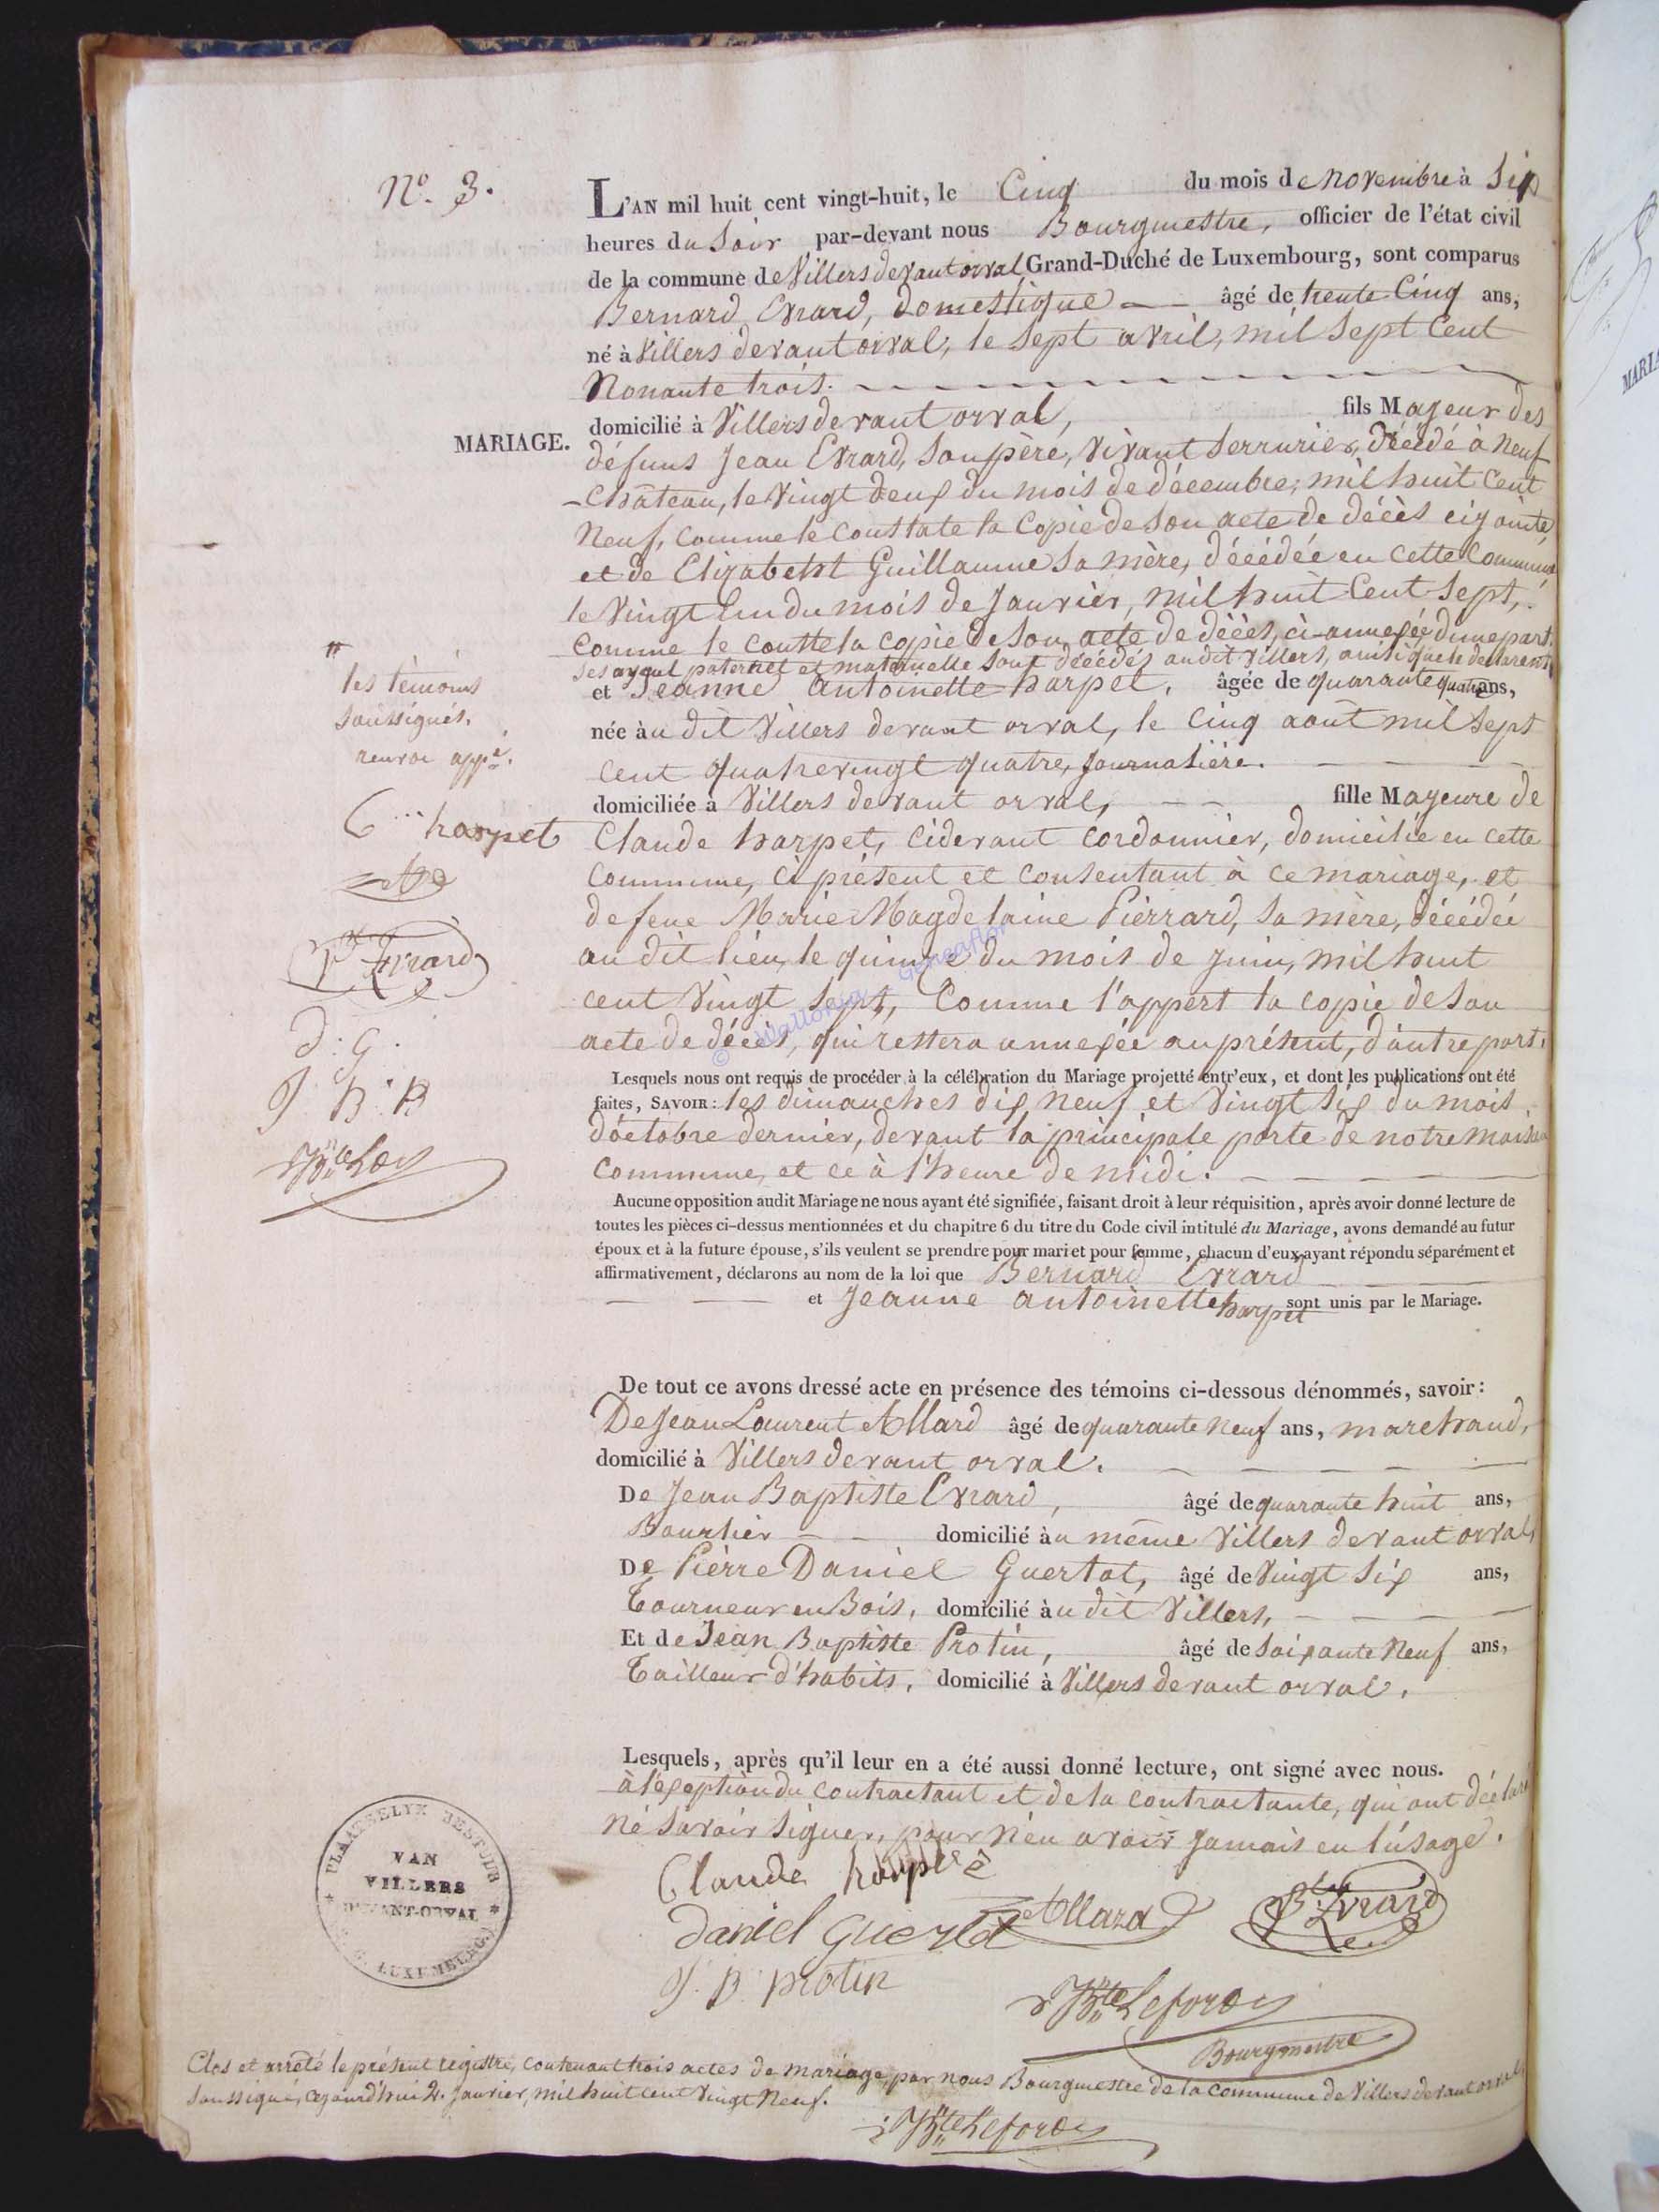 N.º 3.
L'AN mil huit cent vingt-huit, le Cinq du mois de novembre à six
heures du Soir par-devant nous Bourgmestre, officier de l'état civil
de la commune de Villers devant orval, Grand-Duché de Luxembourg, sont comparus
Bernard Evrard, domestique âgé de trente Cinq ans,
né à Villers devant orval, le sept avril, mil sept Cent
Nonante trois.
domicilié à Villers devant orval, fils Majeur des
MARIAGE.
défuns Jean Evrard, Son père, vivant Serrurier, décédé à Neuf
-Château, le Vingt deux du mois de décembre, mil huit Cent
Neuf, comme le constate la Copie de Son acte de décès cijointe,
et de Elizabeht Guillaume Sa mère, décédée en cette Commune
le Vingt Un du mois de Janvier, mil huit Cent Sept,
Comme le coutte la copie de Son acte de décès, ci-annexée, d'une part.
Ses ayeul paternel et maternelle Sont décédés audit Villers, ainsi que le déclarent
les témoins
soussignés.
renvoi app.é
et Jeanne Antoinette harpet, âgée de quarante quatre ans,
née àu dit Villers devant orval, le Cinq août mil Sept
cent quatrevingt quatre, Journalière.
domiciliée à Villers devant orval, fille Mayeure de
C harpet
Claude harpet, cidevant cordonnier, domicilié en cette
Commune, ci présent et consentant à ce mariage, et
de feue Marie Magdelaine Pièrrard, Sa mère, décédée
au dit lieu, le quinze du mois de Juin, mil huit
cent Vingt Sept, Comme l'appert la copie de Son
acte de décès, qui restera annexée au présent, d'autre part.
Evrard
d : G .
J B B
© Wallonia Geneaflor
Lesquels nous ont requis de procéder à la célébration du Mariage projetté entr'eux, et dont les publications ont été
faites, SAVOIR: les dimanches dix neuf et Vingt Six du mois
d'octobre dernier, devant la principale porte de notre maison
Commune, et ce à l'heure de midi.
Aucune opposition audit Mariage ne nous ayant été signifiée, faisant droit à leur réquisition, après avoir donné lecture de
toutes les pièces ci-dessus mentionnées et du chapitre 6 du titre du Code civil intitulé du Mariage, avons demandé au futur
époux et à la future épouse, s'ils veulent se prendre pour mari et pour femme, chacun d'eux ayant répondu séparément et
affirmativement, déclarons au nom de la loi que Bernard Evrard
et Jeanne antoinette harpet sont unis par le Mariage.
De tout ce avons dressé acte en présence des témoins ci-dessous dénommés, savoir:
De Jean Laurent Allard âgé de quarante Neuf ans, marchand,
domicilié à Villers devant orval.
De Jean Baptiste Evrard, âgé de quarante huit ans,
Bourlier domicilié àu même Villers devant orval,
De Pièrre Daniel Guertot, âgé de Vingt Six ans,
Tourneur en Bois, domicilié àu dit Villers,
Et de Jean Baptiste Protin, âgé de Soixante Neuf ans,
Tailleur d'habits, domicilié à Villers devant orval.
Lesquels, après qu'il leur en a été aussi donné lecture, ont signé avec nous.
à l'exeption du contractant et de la contractante, qui ont déclaré
né Savoir Signer, pour n'en avoir jamais eu l'usage.
Claude harpet
Daniel Guertot Allard B.te Evrard
J. B. protin
J B.te Leforey
Bourgmestre
PLAATSELYK BESTUUR
VAN
VILLERS
D'VANT-ORVAL
LUXEMBERG
Clos et arrêté le présent registre, contenant trois actes de mariage, par nous Bourgmestre de la Commune de Villers devant orval,
Soussigné, cejourd'hui 2. Janvier, mil huit cent Vingt Neuf.
J B.te Leforey
MARIA